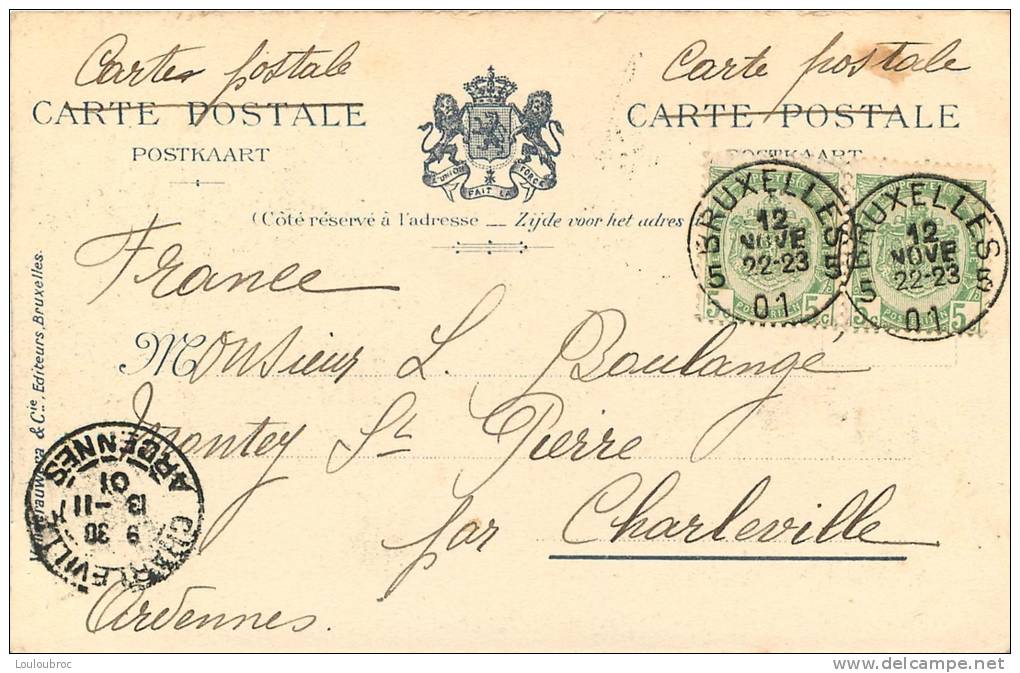 Carte postale
Carte postale
CARTE POSTALE
CARTE POSTALE
POSTKAART
POSTKAART
L'UNION FAIT LA FORCE
(Côté réservé à l'adresse __ Zijde voor het adres
BRUXELLES 5
12
NOVE
22-23
5 5
01
BRUXELLES 5
12
NOVE
22-23
5 5
01
5c
5c
France
Monsieur L. Boulangé
Montey St Pierre
par Charleville
Ardennes.
& Cie, Editeurs, Bruxelles.
CHARLEVILLE
9 30
13 -11
01
ARDENNES
Louloubroc
www.delcampe.net